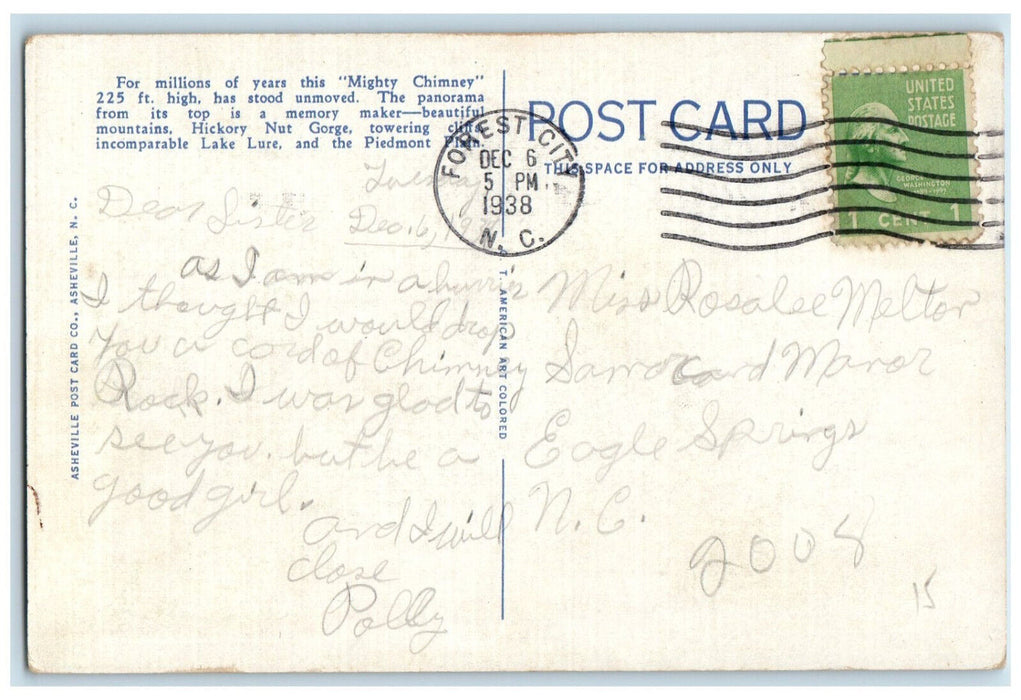 For millions of years this "Mighty Chimney"
225 ft. high, has stood unmoved. The panorama
from its top is a memory maker—beautiful
mountains, Hickory Nut Gorge, towering cliffs,
incomparable Lake Lure, and the Piedmont Plain.
POST CARD
THIS SPACE FOR ADDRESS ONLY
FOREST CITY
DEC 6
5 PM
1938
N. C.
UNITED
STATES
POSTAGE
GEORGE
WASHINGTON
1 CENT 1
ASHEVILLE POST CARD CO., ASHEVILLE, N. C.
T. AMERICAN ART COLORED
Tuesday
Dear Sister Dec. 6, 19
as I am in a
I thought I would drop
you a card of Chimney
Rock. I was glad to
see you. but be a
good girl.
and I will
close
Polly
Miss Rosalee Melton
Samarcand Manor
Eagle Springs
N. C.
2008
15